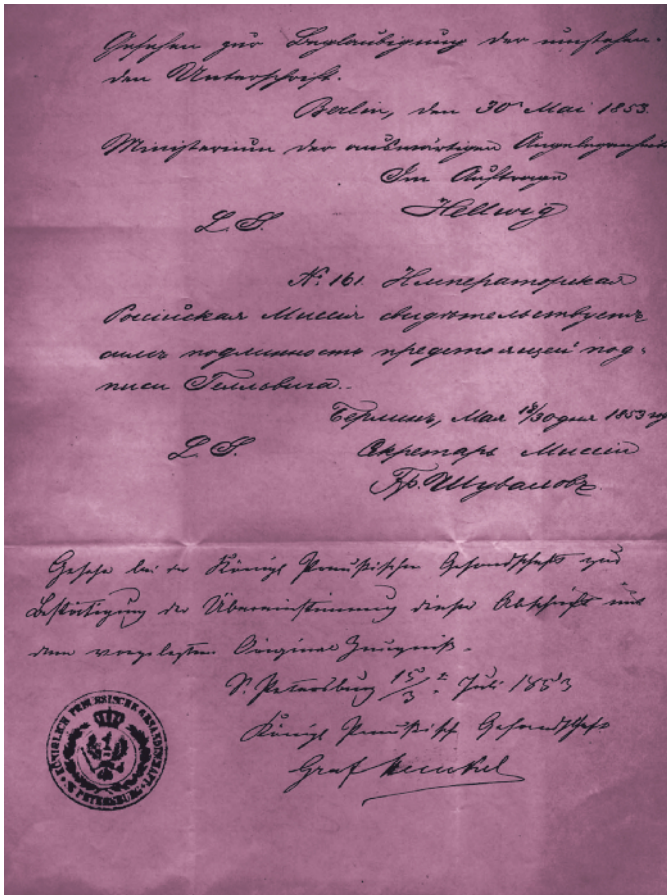 Gesehen zur Beglaubigung der umstehen-
den Unterschrift.
Berlin, den 30 Mai 1853.
Ministerium der auswärtigen Angelegenheit
Im Auftrage
Hellwig
L. S.
№ 161. Императорская
Россійская Миссія свидѣтельствуетъ
симъ подлинность предстоящей под-
писи Гелльвига.
Берлинъ, Мая 18/30 дня 1853 го
Секретарь Миссіи
L. S.
Гр. Шуваловъ
Gesehn bei der Königl Preußischen Gesandtschaft zur
Bestätigung der Übereinstimmung dieser Abschrift mit
dem vorgelegten Original Zeugniß.
St. Petersburg 15/3 Juli 1853
Königl Preußisch Gesandtschaft
Graf Henckel
KÖNIGLICH PREUSSISCHE GESANDSCHAFT
PETERSBURG